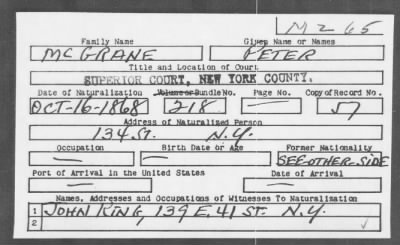 M265
Family Name Given Name or Names
MCGRANE PETER
Title and Location of Court
SUPERIOR COURT, NEW YORK COUNTY.
Date of Naturalization Volume or Bundle No. Page No. Copy of Record No.
OCT-16-1868 218 — 57
Address of Naturalized Person
134 ST. N.Y.
Occupation Birth Date or Age Former Nationality
— — SEE-OTHER-SIDE
Port of Arrival in the United States Date of Arrival
— —
Names, Addresses and Occupations of Witnesses To Naturalization
1 JOHN KING, 139 E. 41 ST. N.Y.
2